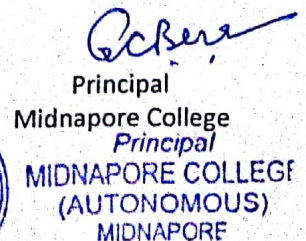 Principal
Midnapore College
Principal
MIDNAPORE COLLEGE
(AUTONOMOUS)
MIDNAPORE